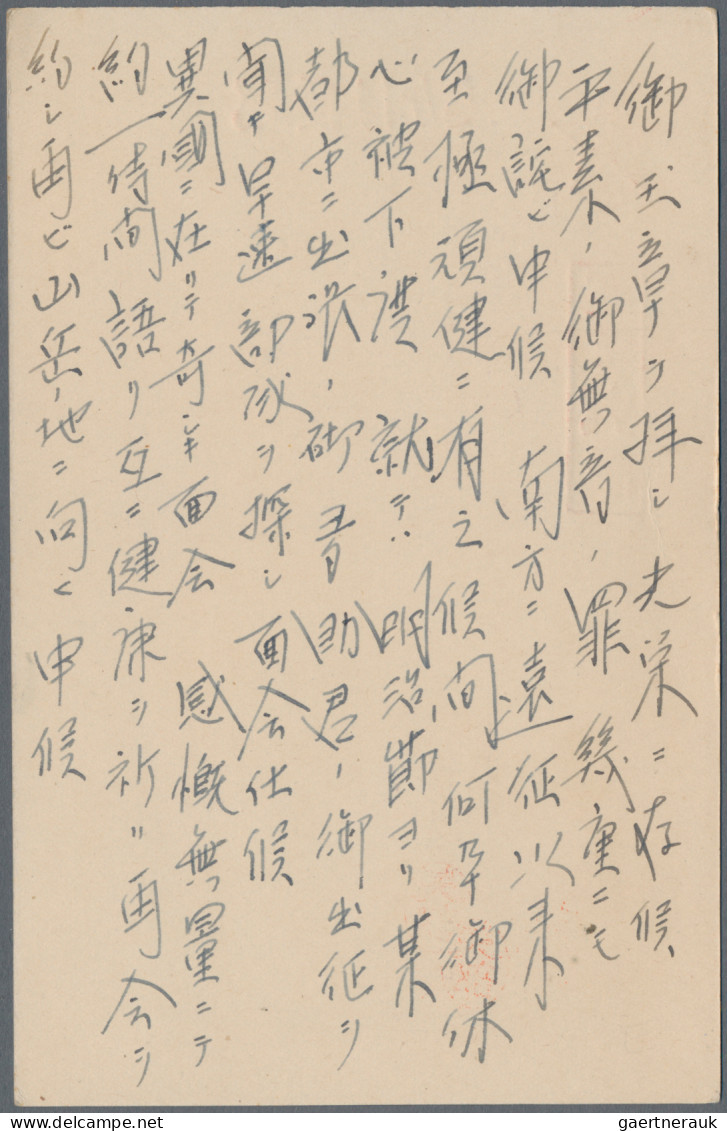 御玉章ヲ拝シ光栄ニ存候
平素ノ御無音ノ罪幾重ニモ
御詫ビ申候 南方ニ遠征以来
至極頑健ニ有之候間何卒御休
心被下度 就テハ明治節ヨリ某
都市ニ出張ノ砌 君ノ御出征ヲ
聞キ早速部隊ヲ探シ面会仕候
異國ニ在リテ奇シキ面会 感慨無量ニテ
約一時間語リ互ニ健康ヲ祈リ再会ヲ
約シ再ビ山岳地ニ向ヒ申候
gaertnerauk